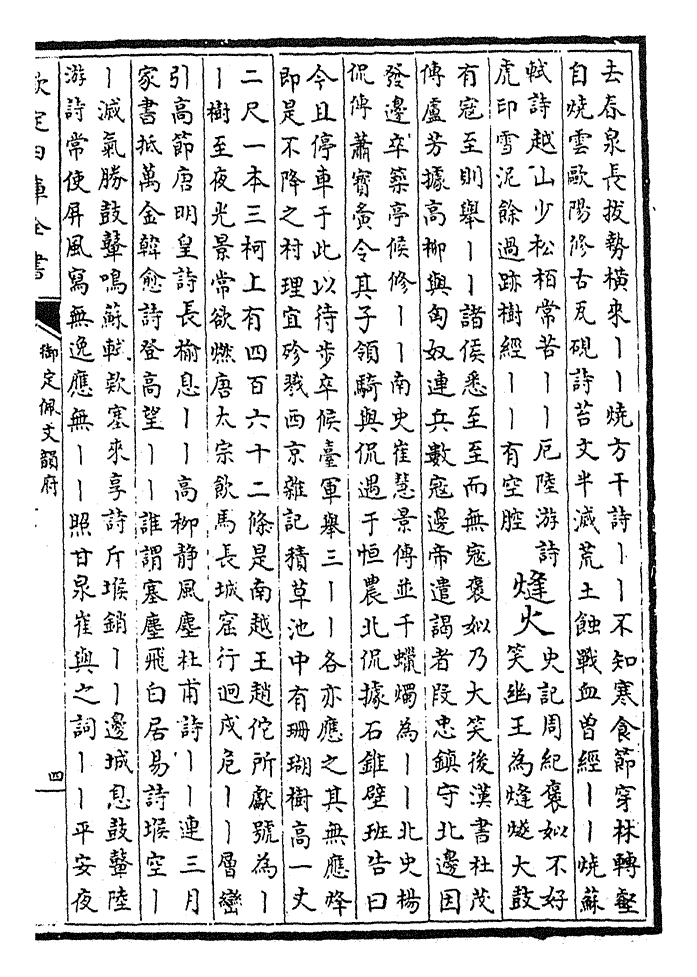 去春泉長拔勢橫來丨丨燒方干詩丨丨不知寒食節穿林轉壑
自燒雲歐陽修古瓦硯詩苔文半滅荒土蝕戰血曽經丨丨燒蘇
軾詩越山少松栢常苦丨丨厄陸游詩
虎印雪泥餘過跡樹經丨丨有空腔
烽火
史記周紀褒姒不好
笑幽王為烽燧大鼓
有寇至則舉丨丨諸侯悉至至而無寇褒姒乃大笑後漢書杜茂
傳盧芳據高柳與匈奴連兵數寇邊帝遣謁者段忠鎮守北邊因
發邊卒築亭候修丨丨南史崔慧景傳並千蠟燭為丨丨北史楊
侃傳蕭寶夤令其子領騎與侃遇于恒農北侃據石錐壁班告曰
今且停車于此以待步卒候臺軍舉三丨丨各亦應之其無應烽
即是不降之村理宜殄戮西京雜記積草池中有珊瑚樹高一丈
二尺一本三柯上有四百六十二條是南越王趙佗所獻號為丨
丨樹至夜光景常欲燃唐太宗飲馬長城窟行迥戍危丨丨層巒
引高節唐明皇詩長榆息丨丨高柳静風塵杜甫詩丨丨連三月
家書抵萬金韓愈詩登高望丨丨誰謂塞塵飛白居易詩堠空丨
丨滅氣勝鼓鼙鳴蘇軾款塞來享詩斥堠銷丨丨邊城息鼓鼙陸
游詩常使屏風寫無逸應無丨丨照甘泉崔與之詞丨丨平安夜
欽定四庫全書
御定佩文韻府
四